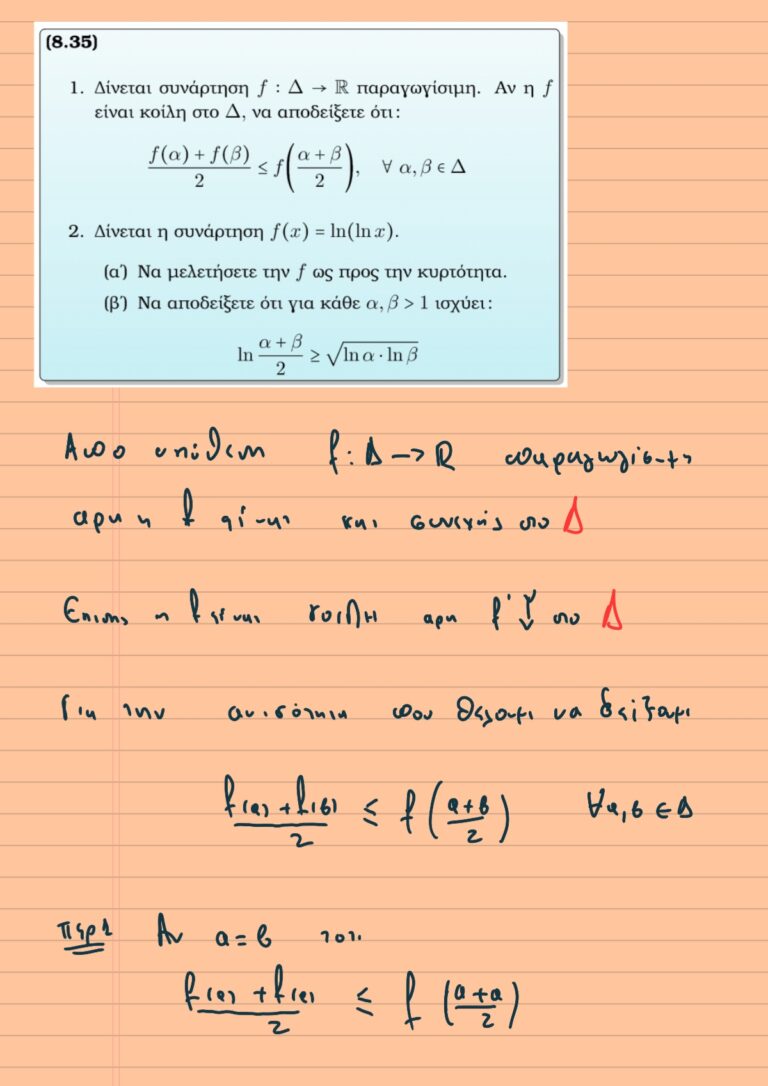 (8.35)
1. Δίνεται συνάρτηση f : Δ → ℝ παραγωγίσιμη. Αν η f
είναι κοίλη στο Δ, να αποδείξετε ότι:
(f(α) + f(β))/2 ≤ f((α + β)/2), ∀ α, β ∈ Δ
2. Δίνεται η συνάρτηση f(x) = ln(ln x).
(α΄) Να μελετήσετε την f ως προς την κυρτότητα.
(β΄) Να αποδείξετε ότι για κάθε α, β > 1 ισχύει:
ln (α + β)/2 ≥ √(ln α · ln β)
Απο υπόθεση f : Δ → ℝ παραγωγίσιμη
αρα η f είναι και συνεχής στο Δ
Επισης η f είναι κοιλη αρα f' ↓ στο Δ
Για την ανισότητα που θέλουμε να δείξουμε
(f(α) + f(β))/2 ≤ f((α + β)/2) ∀α, β ∈ Δ
περ1 Αν α = β τοτε
(f(α) + f(α))/2 ≤ f((α + α)/2)